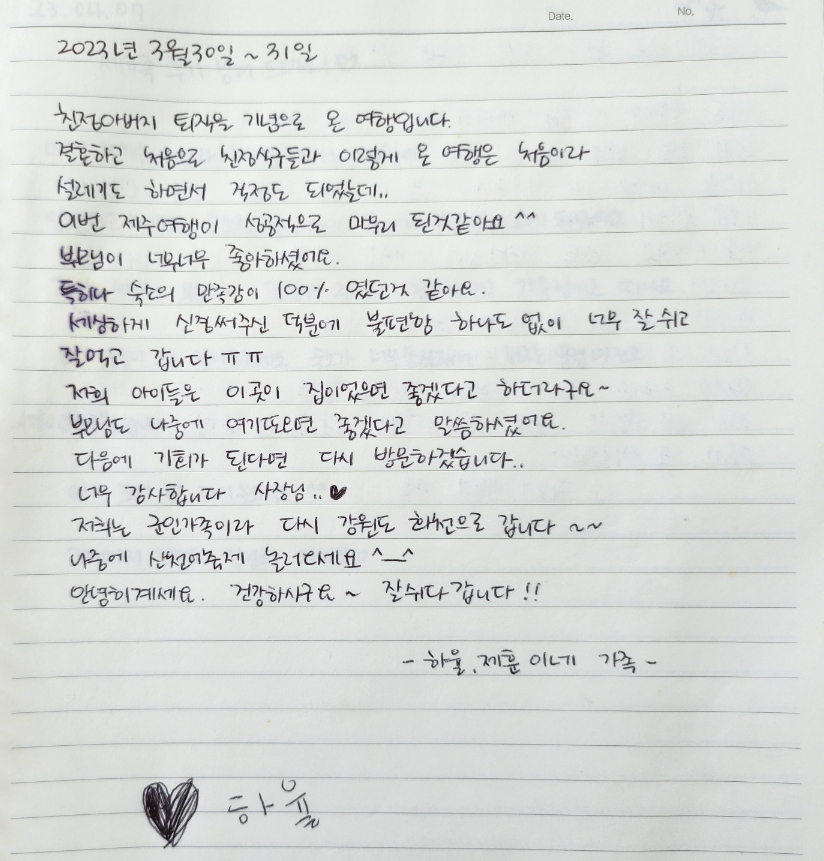 Date. No.
2023년 3월 30일 ~ 31일
친정아버지 퇴직을 기념으로 온 여행입니다.
결혼하고 처음으로 친정식구들과 이렇게 온 여행은 처음이라
설레기도 하면서 걱정도 되었는데..
이번 제주여행이 성공적으로 마무리 된것같아요 ^^
부모님이 너무너무 좋아하셨어요.
특히나 숙소의 만족감이 100% 였던것 같아요.
세심하게 신경써주신 덕분에 불편함 하나도 없이 너무 잘 쉬고
잘먹고 갑니다 ㅠㅠ
저희 아이들은 이곳이 집이었으면 좋겠다고 하더라구요~
부모님도 나중에 여기또오면 좋겠다고 말씀하셨어요.
다음에 기회가 된다면 다시 방문하겠습니다..
너무 감사합니다 사장님..♥
저희는 군인가족이라 다시 강원도 화천으로 갑니다 ~~
나중에 산천어축제 놀러오세요 ^__^
안녕히계세요. 건강하시구요~ 잘쉬다 갑니다!!
- 하율, 제훈이네 가족 -
♥ 하율